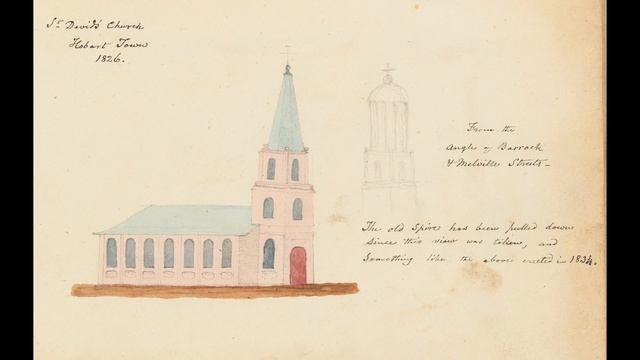 St. David's Church
Hobart Town
1826.
From the
Angle of Barrack
& Melville Streets -
The old Spire has been pulled down
since this view was taken, and
something like the above erected in 1834.